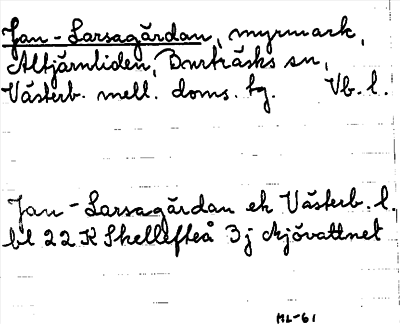 Jan-Larsagårdan, myrmark,
Altjärnliden, Burträsks sn,
Västerb. mell. doms. tg. Vb. l.
Jan-Larsagårdan ek Västerb. l.
bl 22 K Skellefteå 3j Mjövattnet
HL-61